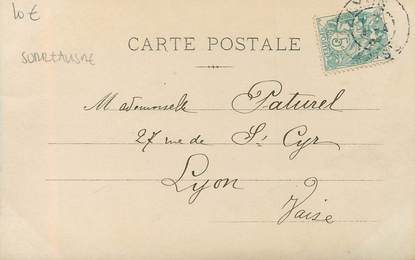 10 €
CARTE POSTALE
Mademoiselle Paturel
27 rue de St Cyr
Lyon
Vaise